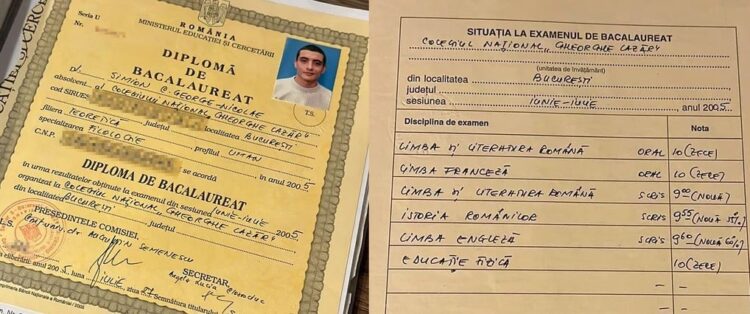 Seria U
Nr.
ROMÂNIA
MINISTERUL EDUCAȚIEI ȘI CERCETĂRII
DIPLOMĂ
DE
BACALAUREAT
T.S.
dl. SIMION C. GEORGE-NICOLAE
absolvent al COLEGIUL NAȚIONAL „GHEORGHE LAZĂR"
cod SIRUES
localitatea BUCUREȘTI
județul
filiera TEORETICĂ
profilul UMAN
specializarea FILOLOGIE
C.N.P.
se acordă
DIPLOMA DE BACALAUREAT
în anul 2005
în urma rezultatelor obținute la examenul din sesiunea IUNIE-IULIE 2005
organizat la COLEGIUL NAȚIONAL „GHEORGHE LAZĂR"
din localitatea BUCUREȘTI
județul
PREȘEDINTELE COMISIEI,
L.S.
AUGUSTIN SEMENESCU
SECRETAR,
eliberării: anul 2005, luna IULIE, ziua 27
Semnătura titularului
SITUAȚIA LA EXAMENUL DE BACALAUREAT
COLEGIUL NAȚIONAL „GHEORGHE LAZĂR"
(unitatea de învățământ)
din localitatea BUCUREȘTI
județul
sesiunea IUNIE-IULIE anul 2005
Disciplina de examen Nota
LIMBA ȘI LITERATURA ROMÂNĂ ORAL 10 (ZECE)
LIMBA FRANCEZĂ ORAL 10 (ZECE)
LIMBA ȘI LITERATURA ROMÂNĂ SCRIS 900 (NOUĂ)
ISTORIA ROMÂNILOR SCRIS 955 (NOUĂ 55%)
LIMBA ENGLEZĂ SCRIS 960 (NOUĂ 60%)
EDUCAȚIE FIZICĂ 10 (ZECE)
– –
– –